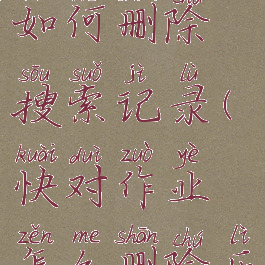 如何删除
sōu suǒ jì lù
搜索记录(
kuài duì zuò yè
快对作业
zěn me shān chú lì
怎么删除历